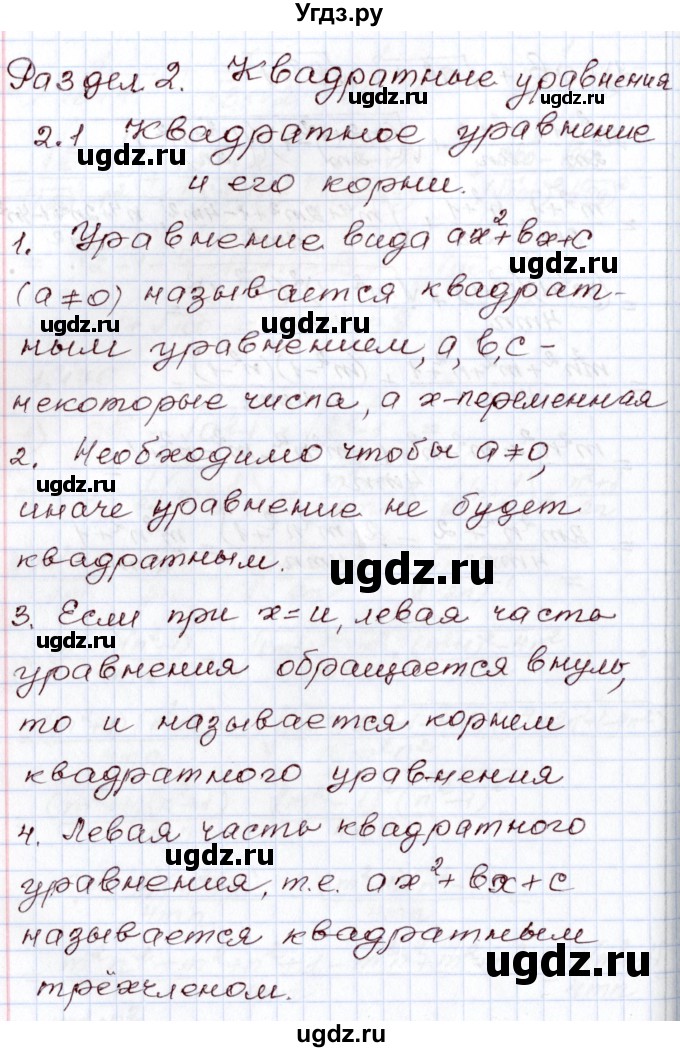 Угдз.ру
Раздел 2. Квадратные уравнения
ugdz.ru ugdz.ru
2.1 Квадратное уравнение
ugdz.ru
и его корни.
1. Уравнение вида ax²+bx+c
ugdz.ru
(a≠0) называется квадрат-
ugdz.ru ugdz.ru
ным уравнением, a, b, c –
некоторые числа, а x-переменная
2. Необходимо чтобы a≠0,
ugdz.ru
иначе уравнение не будет
квадратным.
ugdz.ru
3. Если при x=u, левая часть
ugdz.ru
уравнения обращается в нуль,
то u называется корнем
квадратного уравнения
4. Левая часть квадратного
ugdz.ru
уравнения, т.е. ax²+bx+c
называется квадратным
ugdz.ru
трёхчленом.
ugdz.ru